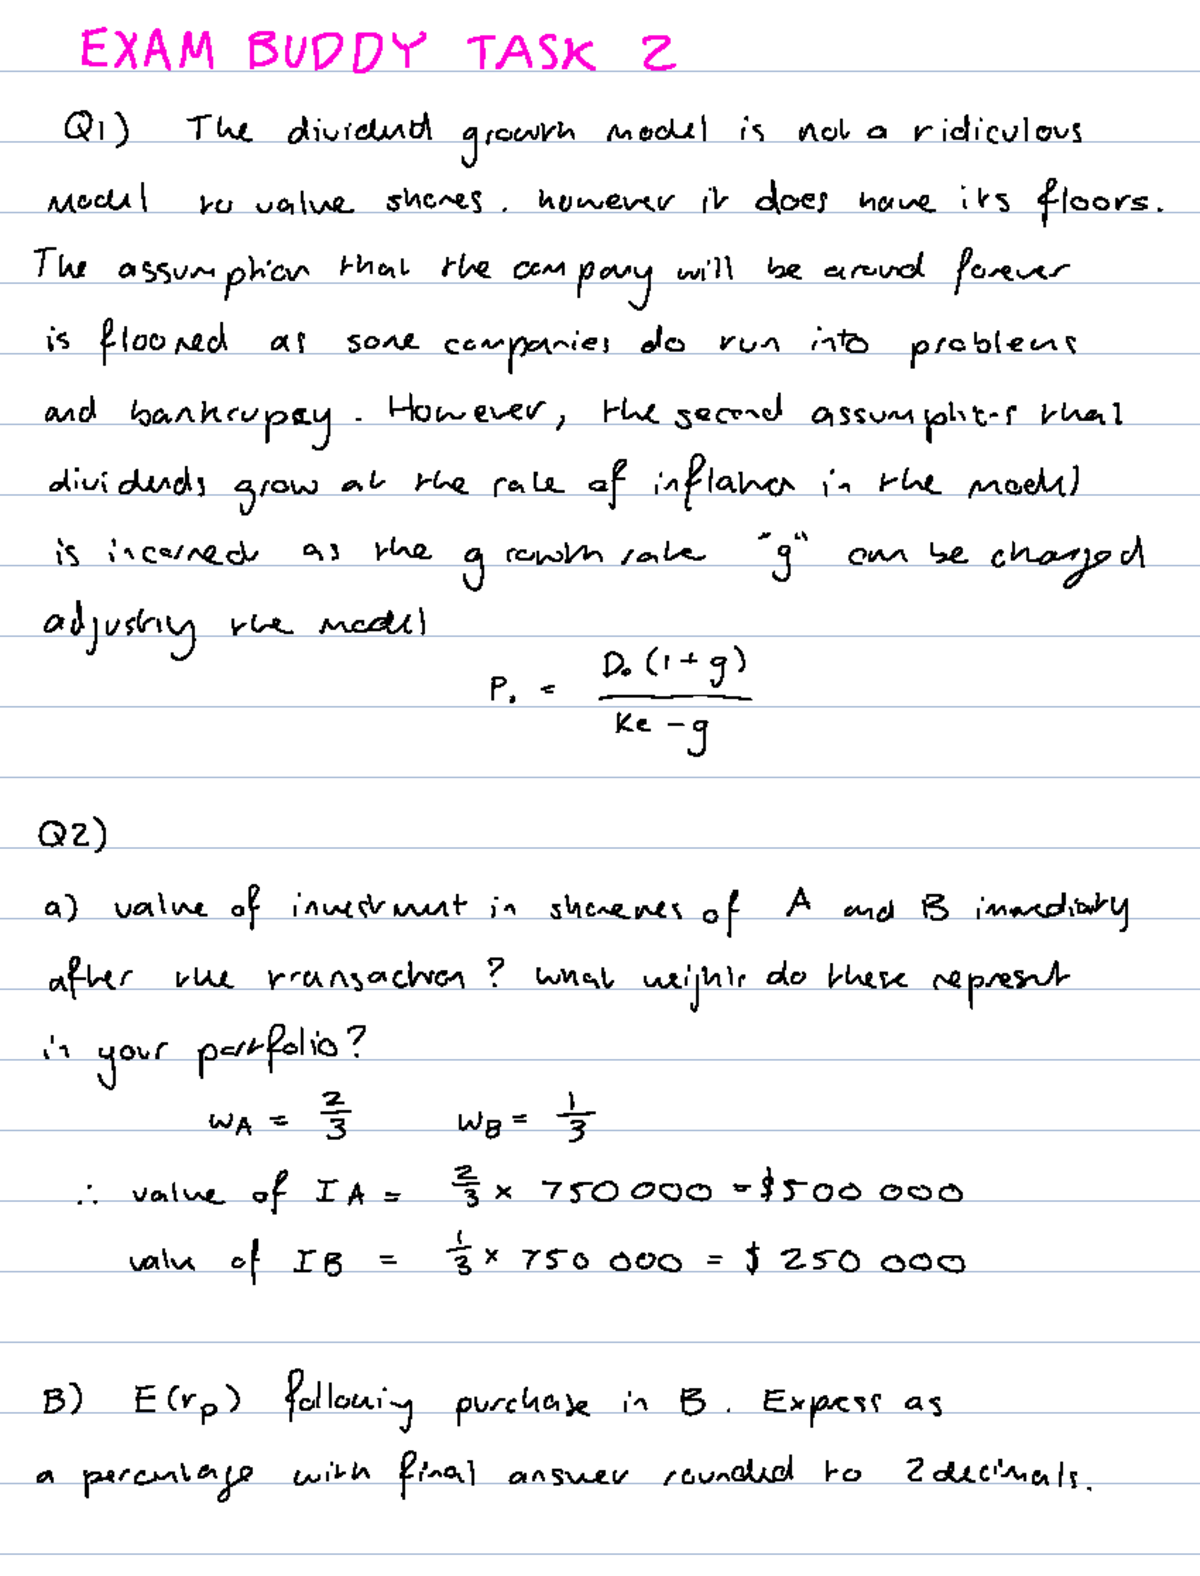 EXAM BUDDY TASK 2
Q1) The dividend growth model is not a ridiculous
model to value shares. however it does have its floors.
The assumption that the company will be around forever
is floored as some companies do run into problems
and bankrupcy. However, the second assumption that
dividends grow at the rate of inflation in the model
is incorrect as the growth rate "g" can be changed
adjusting the model
P₀ = D₀ (1 + g) / Ke - g
Q2)
a) value of investment in shares of A and B immediatly
after the transaction? What weights do these represent
in your portfolio?
WA = 2/3 WB = 1/3
∴ value of IA = 2/3 × 750 000 = $500 000
value of IB = 1/3 × 750 000 = $ 250 000
B) E(rp) following purchase in B. Express as
a percentage with final answer rounded to 2 decimals.